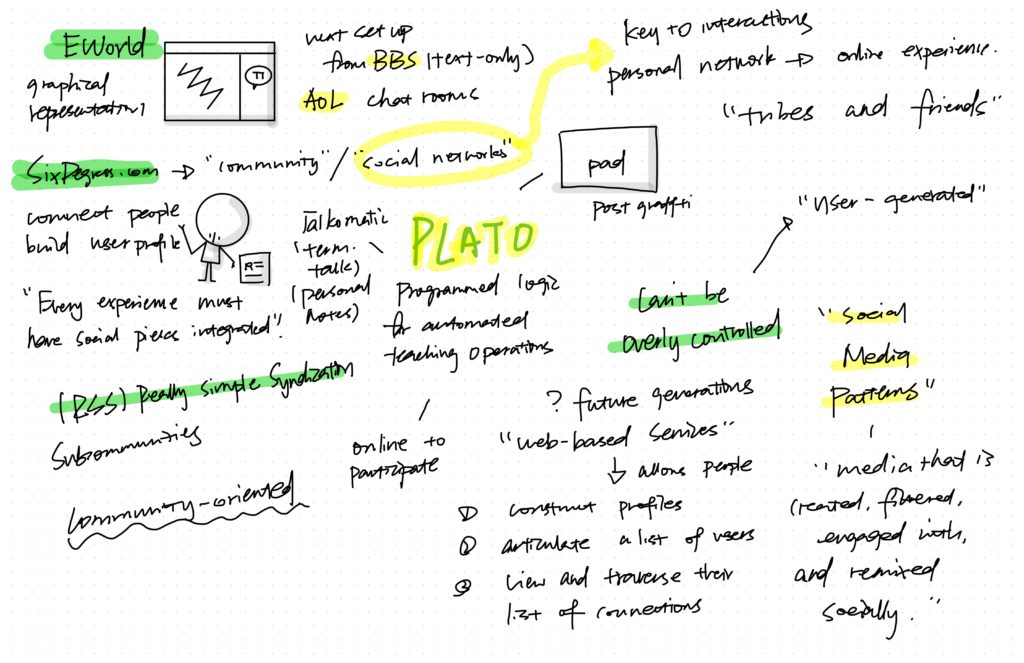 EWorld
graphical
representation)
next set up
from BBS (text-only)
AOL chat rooms
key to interactions
personal network → online experience.
"tribes and friends"
SixDegress.com → "community" / "social networks"
pad
post graffti
connect people
build user profile
"Every experience must
have social pieces integrated"
Talkomatic
(term.
talk)
(personal
notes)
PLATO
Programmed logic
for automated
teaching operations
"User-generated"
Can't be
overly controlled
"Social
Media
Patterns"
(RSS) Really simple Syndization
Subcommunities
community-oriented
online to
participate
? future generations
"web-based services"
↓ allows people
① construct profiles
② articulate a list of users
③ view and traverse their
list of connections
"media that is
created, filtered,
engaged with,
and remixed
socially."